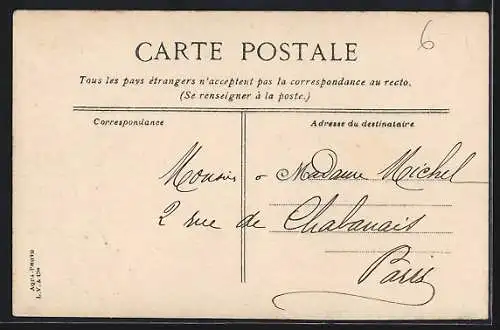 6
CARTE POSTALE
Tous les pays étrangers n'acceptent pas la correspondance au recto.
(Se renseigner à la poste.)
Correspondance Adresse du destinataire
Monsieur & Madame Michel
2 rue de Chabanais
Paris
Aqua-Photo
L. V. & Cie